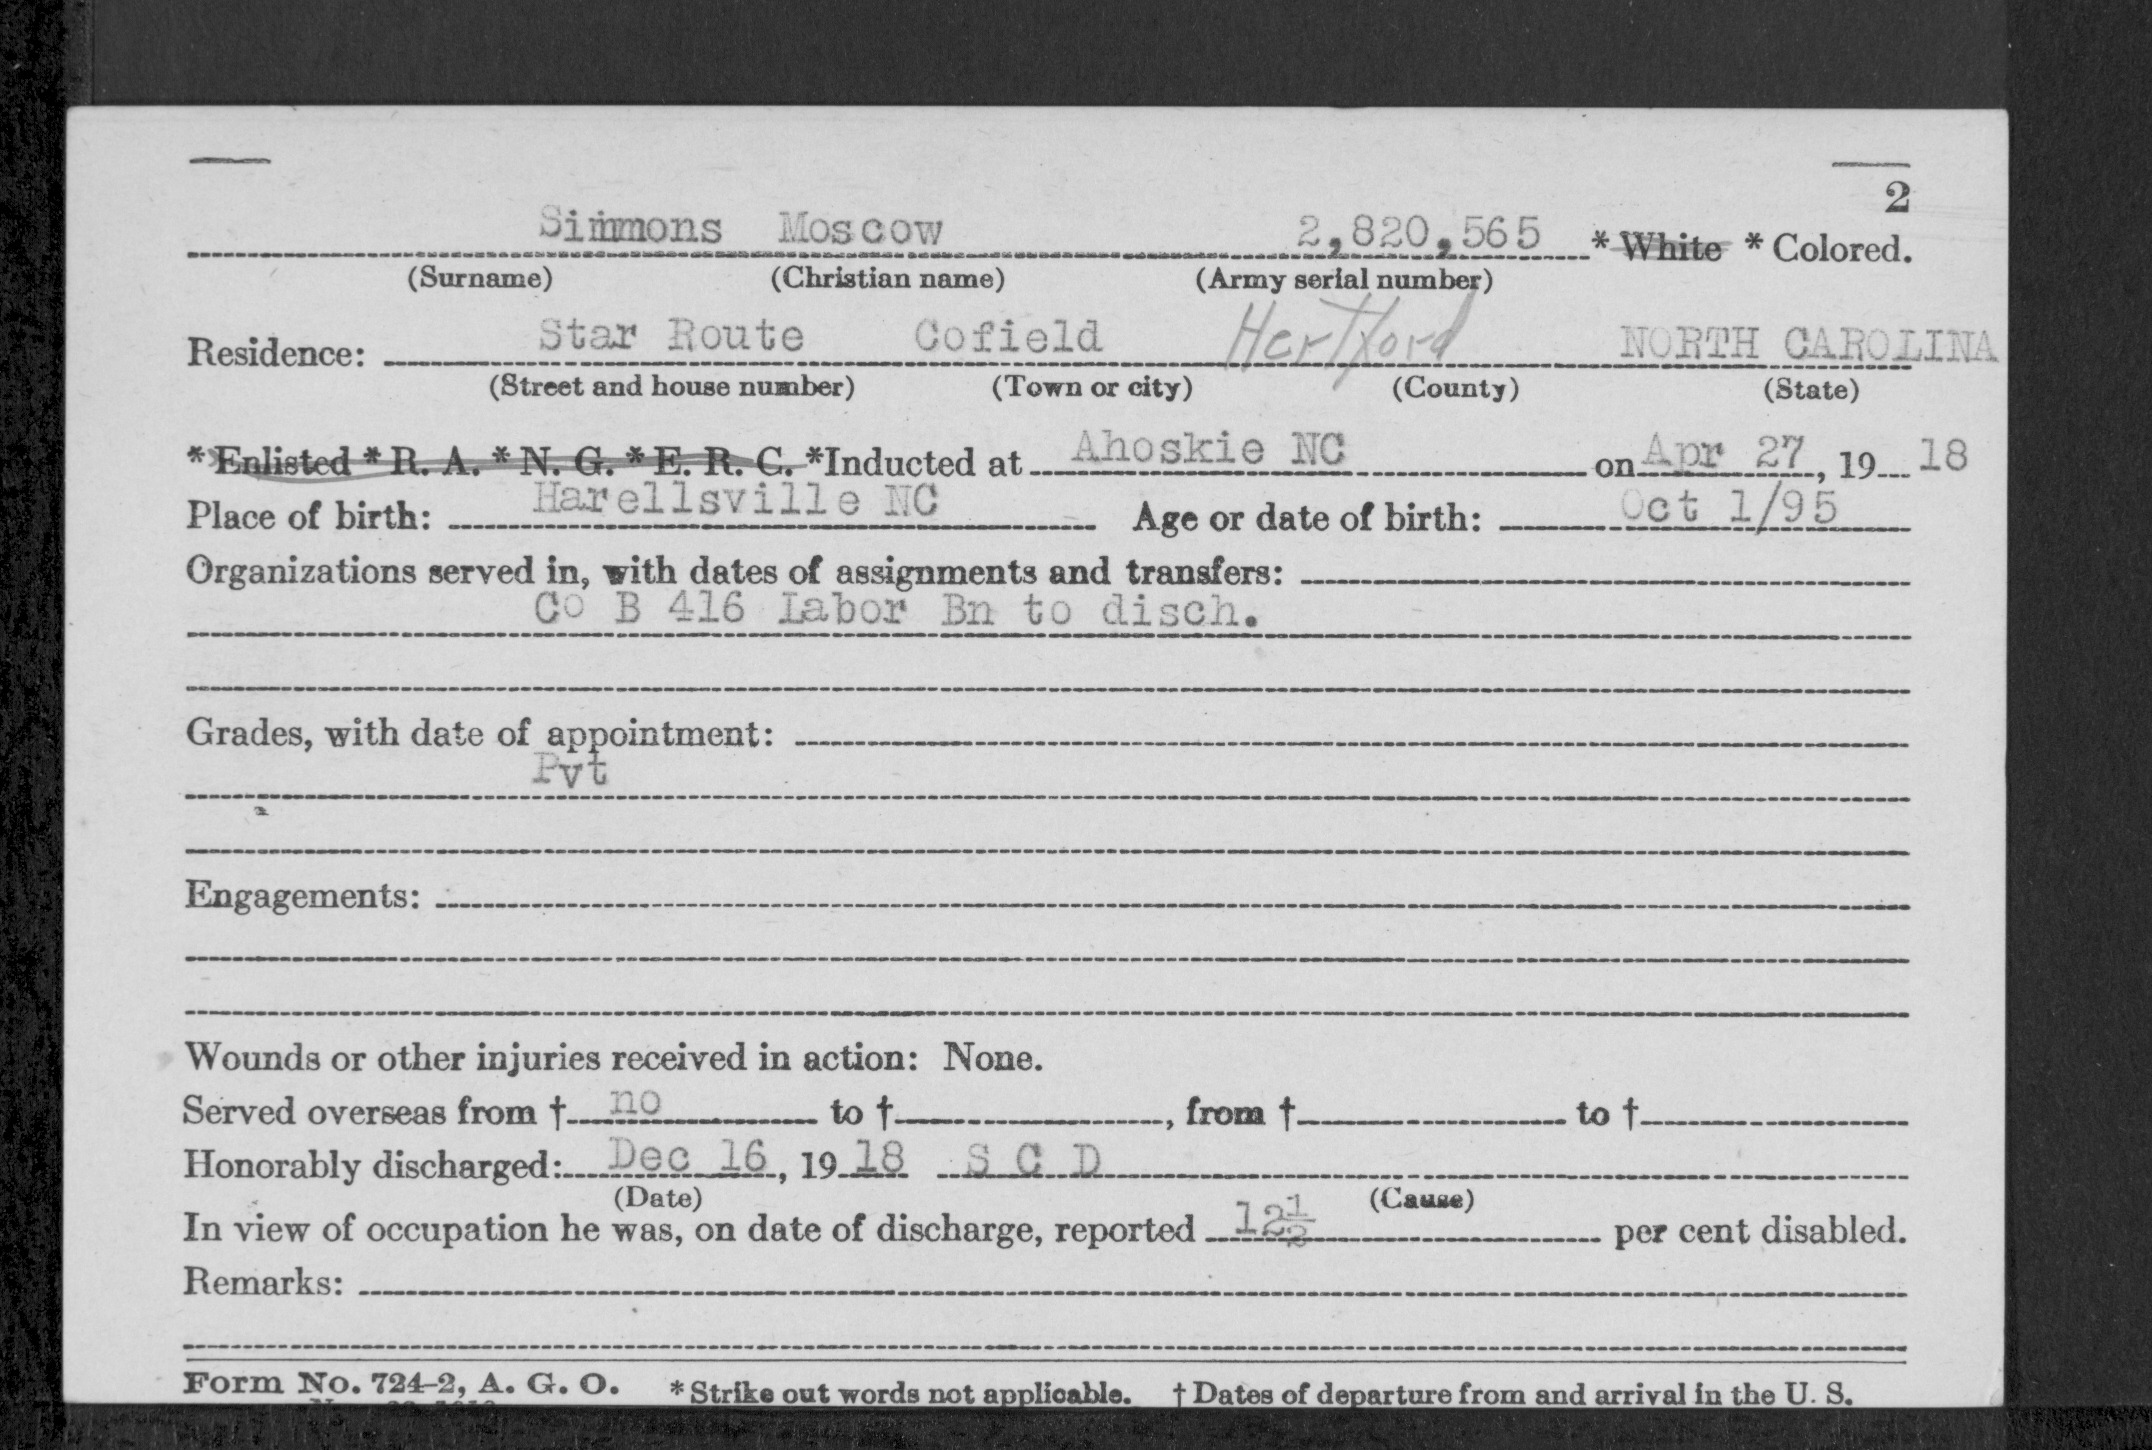 2
Simmons Moscow 2,820,565 * White * Colored.
(Surname) (Christian name) (Army serial number)
Residence: Star Route Cofield Hertford NORTH CAROLINA
(Street and house number) (Town or city) (County) (State)
* Enlisted * R. A. * N. G. * E. R. C. *Inducted at Ahoskie NC on Apr 27, 19 18
Place of birth: Harellsville NC Age or date of birth: Oct 1/95
Organizations served in, with dates of assignments and transfers:
Co B 416 Labor Bn to disch.
Grades, with date of appointment:
Pvt
Engagements:
Wounds or other injuries received in action: None.
Served overseas from † no to †, from † to †
Honorably discharged: Dec 16, 19 18 S C D
(Date) (Cause)
In view of occupation he was, on date of discharge, reported 12½ per cent disabled.
Remarks:
Form No. 724-2, A. G. O. * Strike out words not applicable. † Dates of departure from and arrival in the U. S.